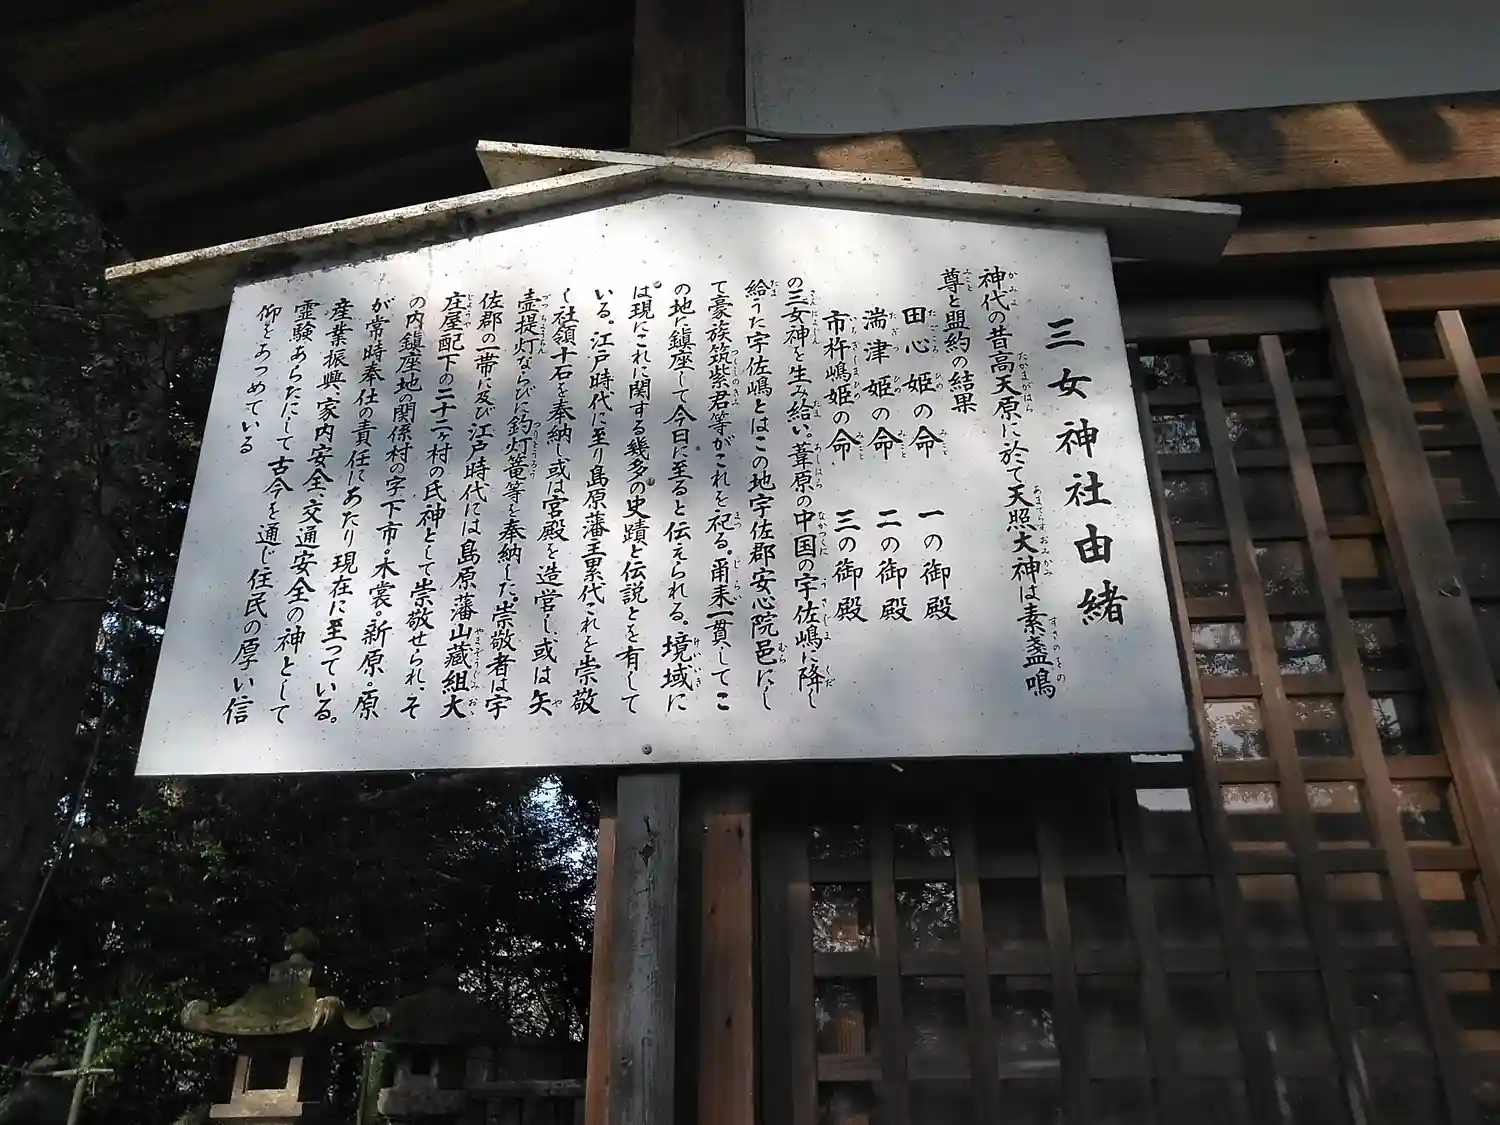 三女神社由緒
神代の昔高天原に於て天照大神は素盞鳴
尊と盟約の結果
田心姫の命 一の御殿
湍津姫の命 二の御殿
市杵嶋姫の命 三の御殿
の三女神を生み給い。葦原の中国の宇佐嶋に降し
給うた宇佐嶋とはこの地宇佐郡安心院邑にし
て豪族筑紫君等がこれを祀る。爾来一貫してこ
の地に鎮座して今日に至ると伝えられる。境域に
は現にこれに関する幾多の史蹟と伝説とを有して
いる。江戸時代に至り島原藩主累代これを崇敬
し社領十石を奉納し或は宮殿を造営し、或は矢
壷提灯ならびに釣灯篭等を奉納した。崇敬者は宇
佐郡の一帯に及び江戸時代には島原藩山蔵組大
庄屋配下の二十二ヶ村の氏神として崇敬せられ、そ
の内鎮座地の関係村の字下市。木裳、新原。原
が常時奉仕の責任にあたり現在に至っている。
産業振興、家内安全、交通安全の神として
霊験あらたにして古今を通じ住民の厚い信
仰をあつめている